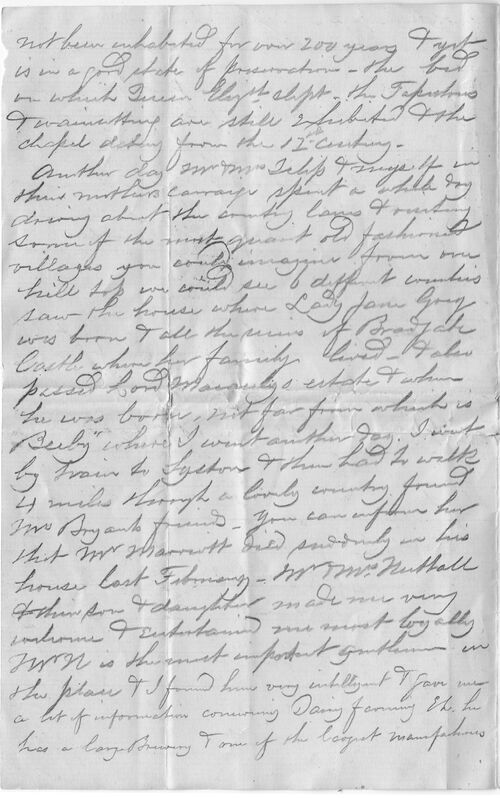 not been enhabited for over 200 years & yet
is in a good state of preservation - the bed
on which Queen Elizth slept - the Tapestries
& wainscotting are still exhibited & the
chapel dating from the 12th Century -
Another day Mr & Mrs & myself in
their mothers carriage spent a whole day
driving about the country lanes & visiting
some of the most quaint old fashioned
villages you could imagine from one
hill top we could see 6 diffent counties
saw the house where Lady Jane Grey
was born & all the ruins of Bradgate
Castle where her family lived - & also
passed Lord Macaulys estate & where
he was born, not far from which is
"Beeby" where I went another day. I went
by train to Syston & then had to walk
4 miles through a lovely country found
Mrs Bryants friend - You can inform her
that Mr Marriott died suddenly in his
house last February - Mr & Mrs Nuttall
& their son & daughter made me very
welcome & entertained me most loyally
Mr N is the most important gentleman in
the place & I found him very intelligent & gave me
a lot of information concerning Dairy farming Etc. he
has a large Brewery & one of the largest manufactories